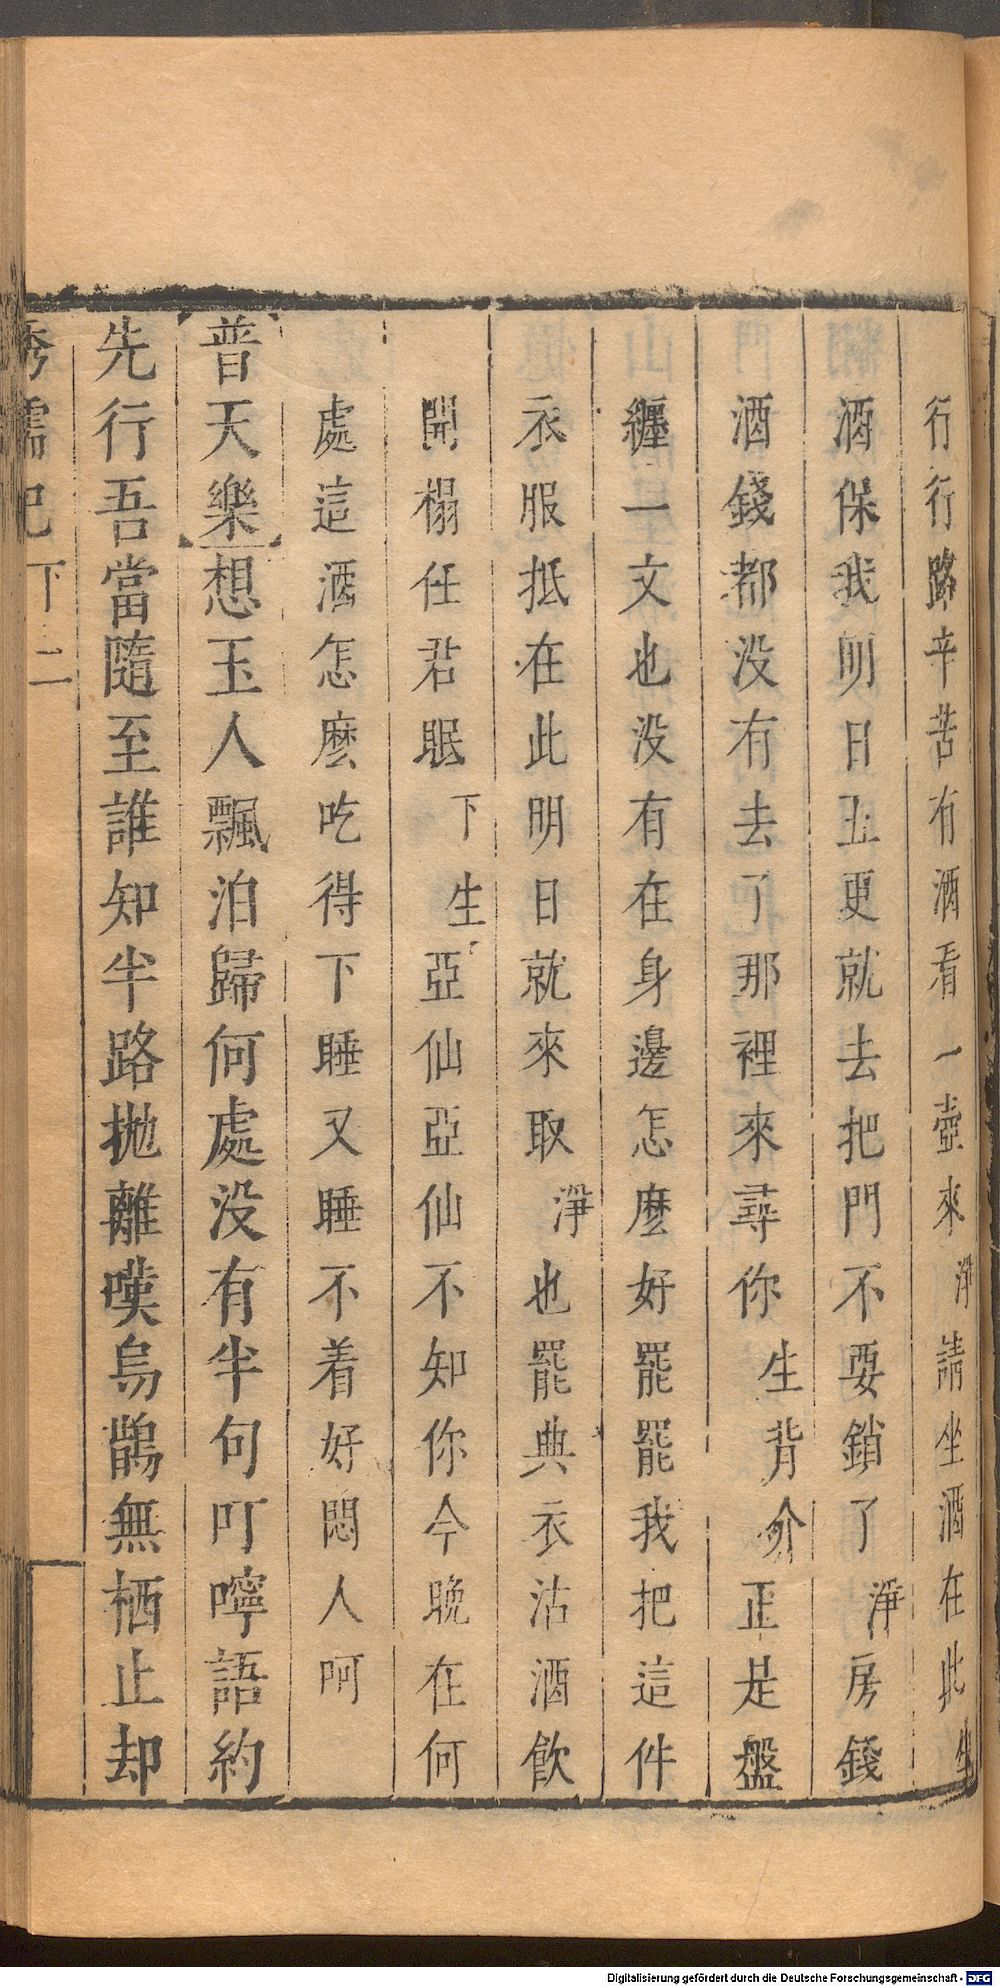 行行路辛苦有酒看一壺來淨請坐酒在此生
酒保我明日五更就去把門不要鎖了淨房錢
酒錢都没有去了那裡來尋你生背介正是盤
纏一文也没有在身邊怎麽好罷罷我把這件
衣服抵在此明日就來取淨也罷典衣沽酒飲
開榻任君眠下生亞仙亞仙不知你今晚在何
處這酒怎麽吃得下睡又睡不着好悶人呵
普天樂想玉人飄泊歸何處没有半句叮嚀語約
先行吾當隨至誰知半路抛離嘆烏鵲無栖止却
繡襦記下二
Digitalisierung gefördert durch die Deutsche Forschungsgemeinschaft - DFG